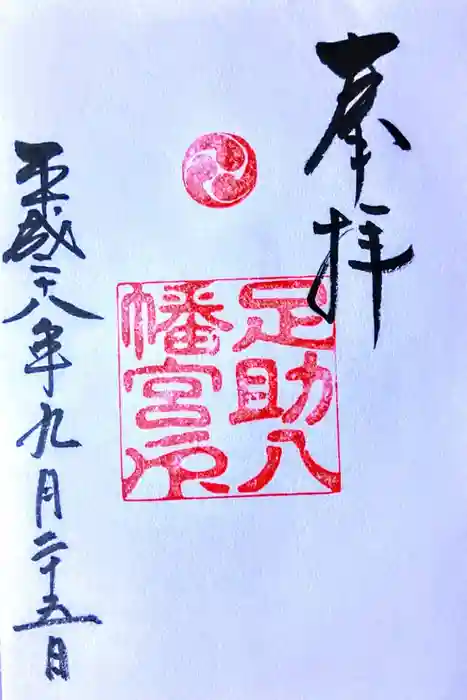 奉拝
足助八
幡宮印
平成二十八年九月二十五日